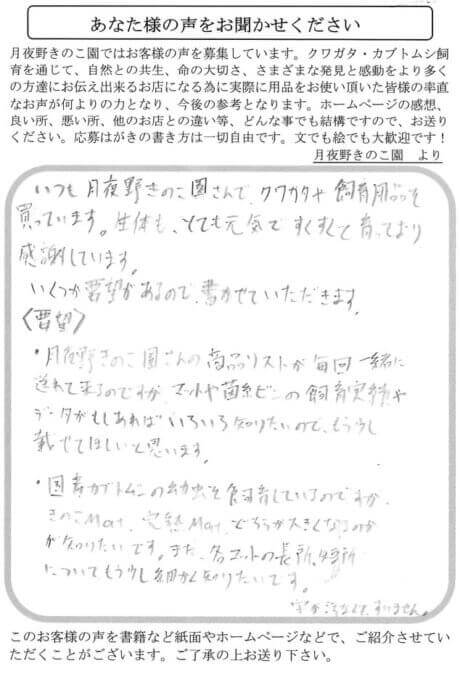 あなた様の声をお聞かせください
月夜野きのこ園ではお客様の声を募集しています。クワガタ・カブトムシ飼
育を通じて、自然との共生、命の大切さ、さまざまな発見と感動をより多く
の方達にお伝え出来るお店になる為に実際に用品をお使い頂いた皆様の率直
なお声が何よりの力となり、今後の参考となります。ホームページの感想、
良い所、悪い所、他のお店との違い等、どんな事でも結構ですので、お送り
ください。応募はがきの書き方は一切自由です。文でも絵でも大歓迎です！
月夜野きのこ園　より
いつも月夜野きのこ園さんで、クワガタや飼育用品を
買っています。生体も、とても元気ですくすくと育っており
感謝しています。
いくつか要望があるので、書かせていただきます。
〈要望〉
・月夜野きのこ園さんの商品リストが毎回一緒に
送れて来るのですが、マットや菌糸ビンの飼育実績や
データがもしあればいろいろ知りたいので、もう少し
載せてほしいと思います。
・国産カブトムシの幼虫を飼育しているのですが、
きのこMat、完熟Mat、どちらが大きくなるのか
が知りたいです。また、各マットの長所、短所
についてもう少し細かく知りたいです。
字が汚なくて、すいません。
このお客様の声を書籍など紙面やホームページなどで、ご紹介させてい
ただくことがございます。ご了承の上お送り下さい。